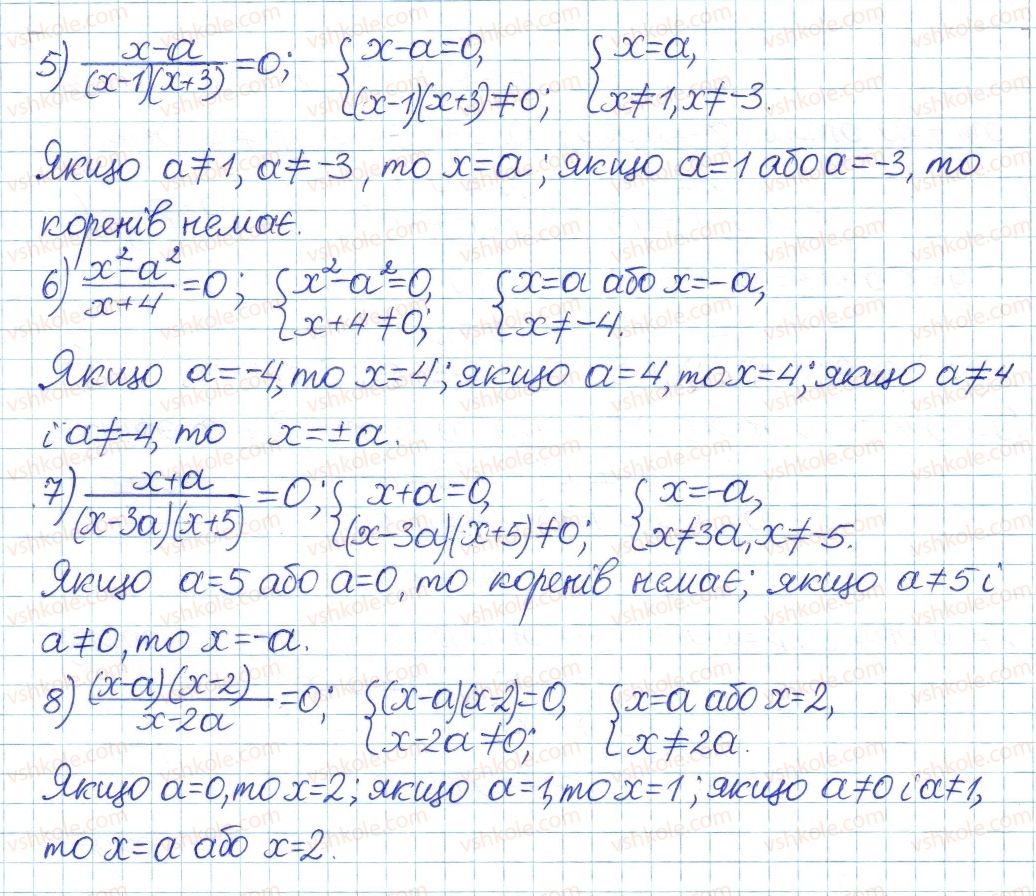 5) (x-a)/((x-1)(x+3)) = 0; { x-a=0, (x-1)(x+3)≠0; { x=a, x≠1, x≠-3.
Якщо a≠1, a≠-3, то x=a; якщо a=1 або a=-3, то
коренів немає.
6) (x²-a²)/(x+4) = 0; { x²-a²=0, x+4≠0; { x=a або x=-a, x≠-4.
Якщо a=-4, то x=4; якщо a=4, то x=4; якщо a≠4
і a≠-4, то x=±a.
7) (x+a)/((x-3a)(x+5)) = 0; { x+a=0, (x-3a)(x+5)≠0; { x=-a, x≠3a, x≠-5.
Якщо a=5 або a=0, то коренів немає; якщо a≠5 і
a≠0, то x=-a.
8) ((x-a)(x-2))/(x-2a) = 0; { (x-a)(x-2)=0, x-2a≠0; { x=a або x=2, x≠2a.
Якщо a=0, то x=2; якщо a=1, то x=1; якщо a≠0 і a≠1,
то x=a або x=2.